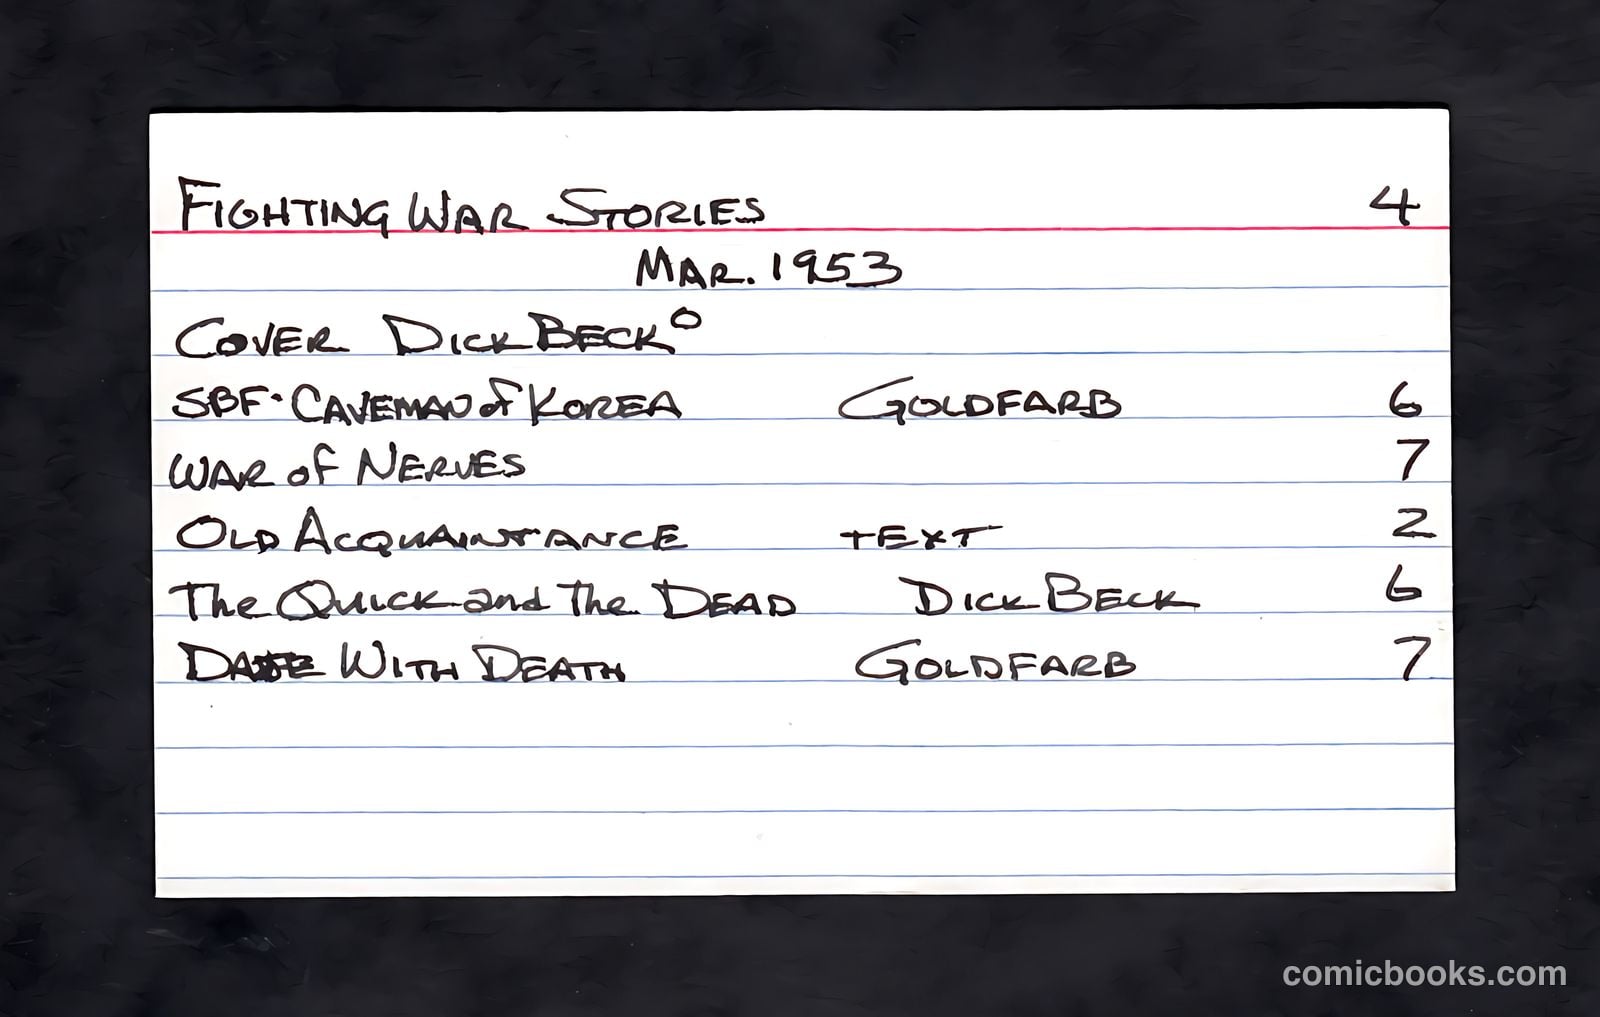 FIGHTING WAR STORIES 4
MAR. 1953
COVER DICK BECK°
SBF· CAVEMAN of KOREA GOLDFARB 6
WAR of NERVES 7
OLD ACQUAINTANCE TEXT 2
The QUICK and The DEAD DICK BECK 6
DATE WITH DEATH GOLDFARB 7
comicbooks.com